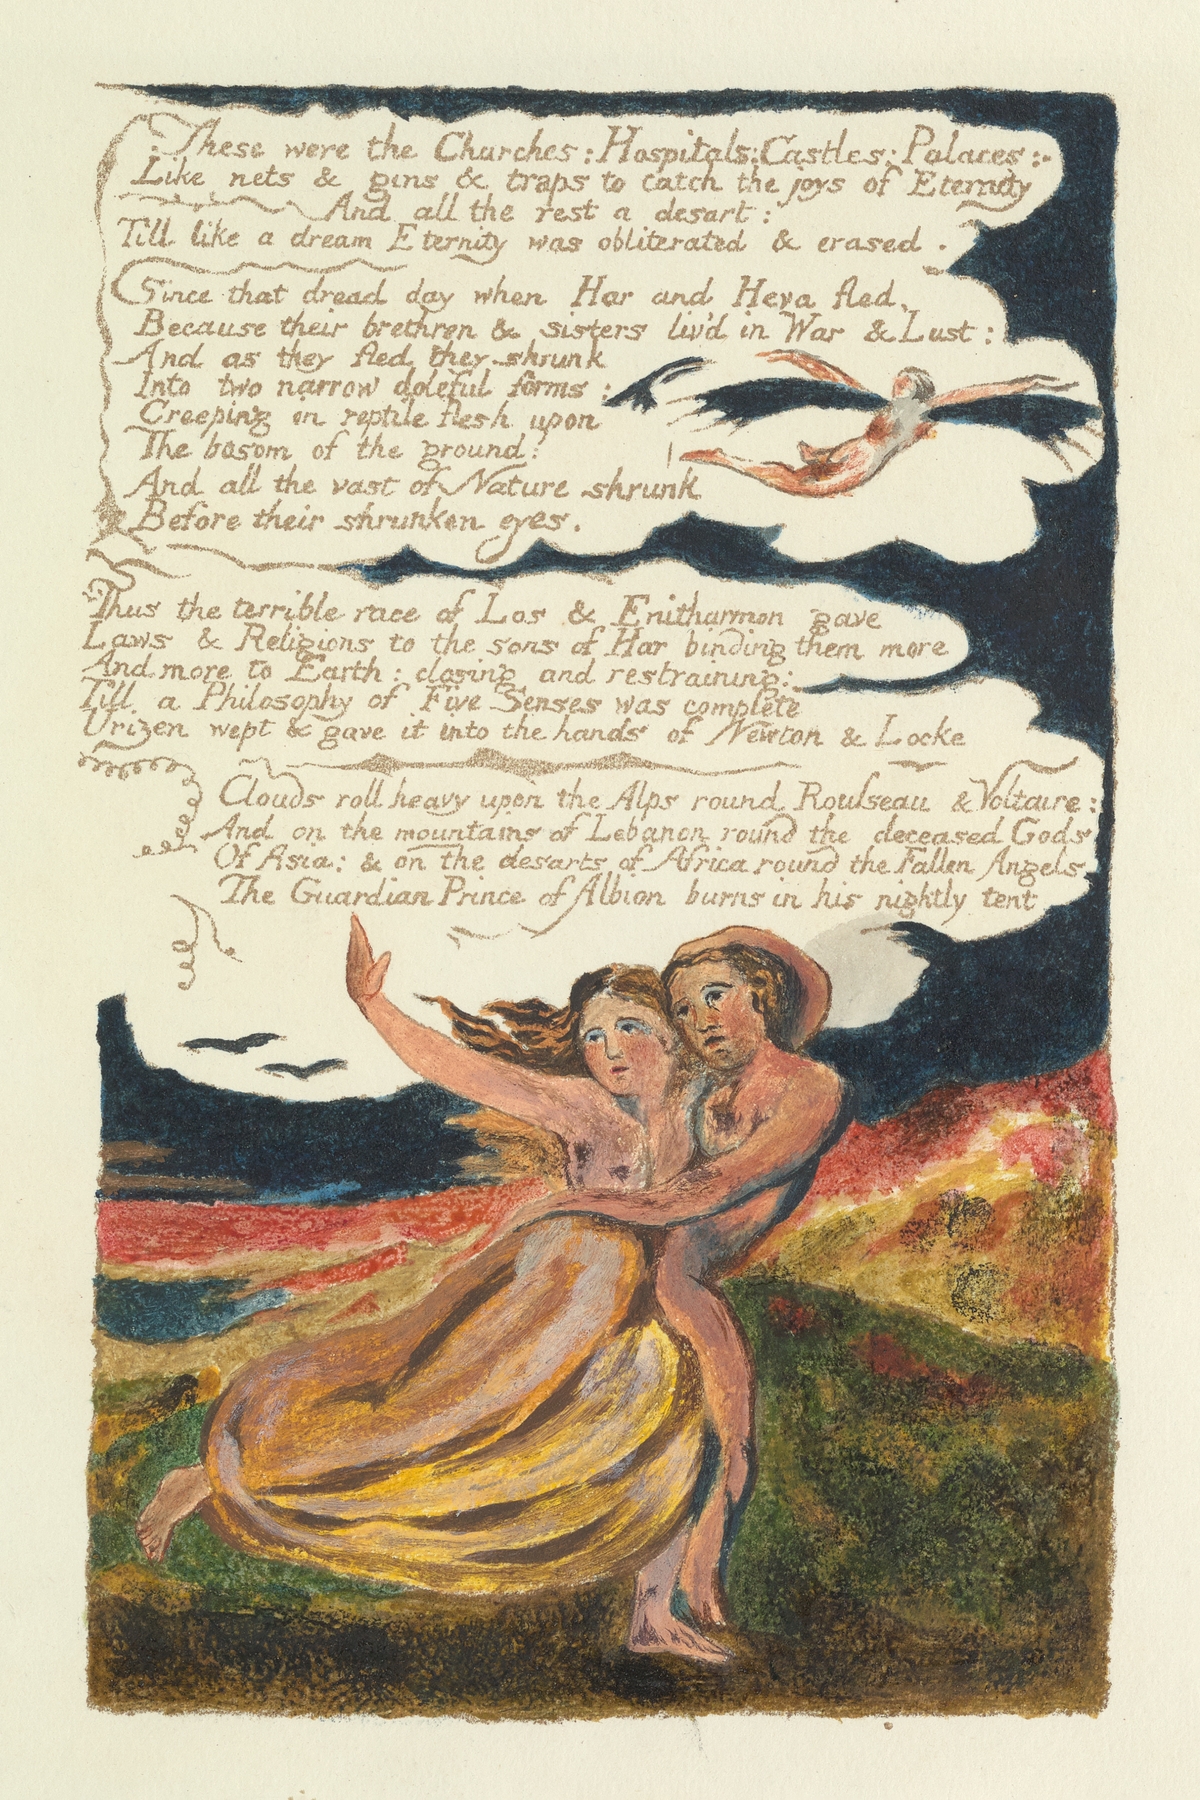 These were the Churches: Hospitals: Castles: Palaces:
Like nets & gins & traps to catch the joys of Eternity
And all the rest a desart:
Till like a dream Eternity was obliterated & erased.
Since that dread day when Har and Heva fled,
Because their brethren & sisters liv'd in War & Lust:
And as they fled they shrunk
Into two narrow doleful forms:
Creeping in reptile flesh upon
The bosom of the ground:
And all the vast of Nature shrunk
Before their shrunken eyes.
Thus the terrible race of Los & Enitharmon gave
Laws & Religions to the sons of Har binding them more
And more to Earth: closing and restraining:
Till a Philosophy of Five Senses was complete
Urizen wept & gave it into the hands of Newton & Locke
Clouds roll heavy upon the Alps round Rousseau & Voltaire:
And on the mountains of Lebanon round the deceased Gods
Of Asia: & on the desarts of Africa round the Fallen Angels
The Guardian Prince of Albion burns in his nightly tent